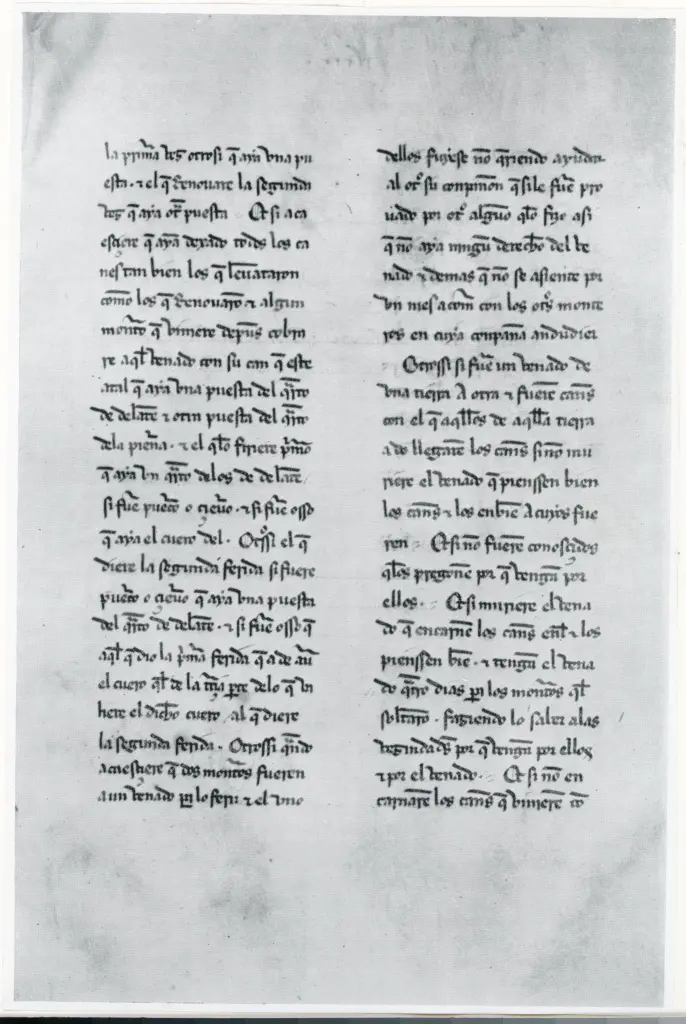 la prim̃a veg otrosi q̃ aya vna pu
esta · ⁊ el q̃ Renouare la segunda
veg q̃ aya otᷓ puesta Et si aca
esçiere q̃ ayã dexado todos los ca
nes tan bien los q̃ leuataron
com̃o los q̃ Renouarõ ⁊ algun
mont̃o q̃ viniere depũs cobra
re aql̃ venado con su can q̃ este
atal q̃ aya vna puesta del q̃rto
de delãte ⁊ otra puesta del q̃rto
dela pierña · ⁊ el q̃lo firiere p̃mõ
q̃ aya vn q̃rto delos de delãte
si fuẽ puẽco o çieruo · ⁊ si fuẽ osso
q̃ aya el cuero del · Otᷤsi el q̃
diere la segunda ferida si fuere
puẽco o çieruo q̃ aya vna puesta
del q̃rto de delãte · ⁊ si fuẽ osso q̃
aql̃ q̃ dio la p̃ma ferida q̃ a de aũ
el cuero ql̃ de la tr̃ia pr̃te delo q̃ va
liere el dich̃o cuero al q̃ diere
la segunda ferida · Otrossi q̃ndo
acaesçiere q̃ dos mont̃os fueren
a vn venado pᷓ lo ferir ⁊ el vno
dellos fuyese nõ q̃riendo ayudar
al otᷓ su conpañon q̃ si le fuẽ pro
uado por otᷓ alguno q̃lo fizo asi
q̃ nõ aya ningũ derech̃o del ve
nado ⁊ demas q̃ nõ se asiente por
vn mes a com̃ con los otᷤs monte
ros en cuya conpaña andudier̃
Otrossi si fuẽ un venado de
vna tierra A otra ⁊ fuerẽ cañs
con el q̃ aql̃los de aql̃la tierra
a do llegarẽ los cañs si nõ mu
riere el venado q̃ pienssen bien
los cañs ⁊ los enbiẽ A cuyos fue
ren Et si nõ fuerẽ conosçidos
q̃los pregonẽ por q̃ vengã por
ellos · Et si muriere el vena
do q̃ encarnẽ los cañs en̄l ⁊ los
pienssen biẽ · ⁊ tengã el vena
do q̃tro dias pᷓ los mont̃os ql̃
soltarõ · faziendo lo saber alas
vegindads̃ por q̃ vengã por ellos
⁊ por el venado · Et si nõ en
carnarẽ los cañs q̃ vinierẽ cõ